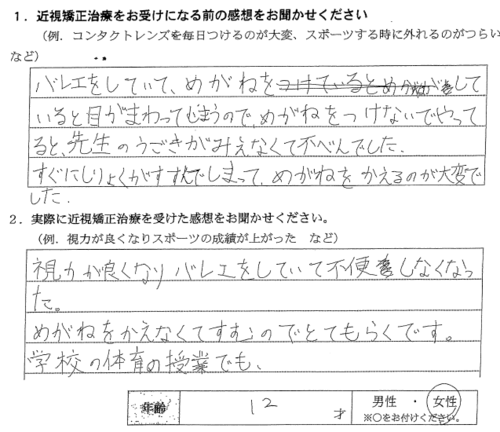 1．近視矯正治療をお受けになる前の感想をお聞かせください
（例．コンタクトレンズを毎日つけるのが大変、スポーツする時に外れるのがつらい
など）
バレエをしていて、めがねをして
いると目がまわってしまうので、めがねをつけないでやって
ると、先生のうごきがみえなくて不べんでした.
すぐにしりょくがすすんでしまって、めがねをかえるのが大変で
した.
2．実際に近視矯正治療を受けた感想をお聞かせください。
（例．視力が良くなりスポーツの成績が上がった など）
視力が良くなりバレエをしていて不便しなくなっ
た。
めがねをかえなくてすむのでとてもらくです。
学校の体育の授業でも、
年齢 12 才 男性 ・ 女性
※○をお付けください。